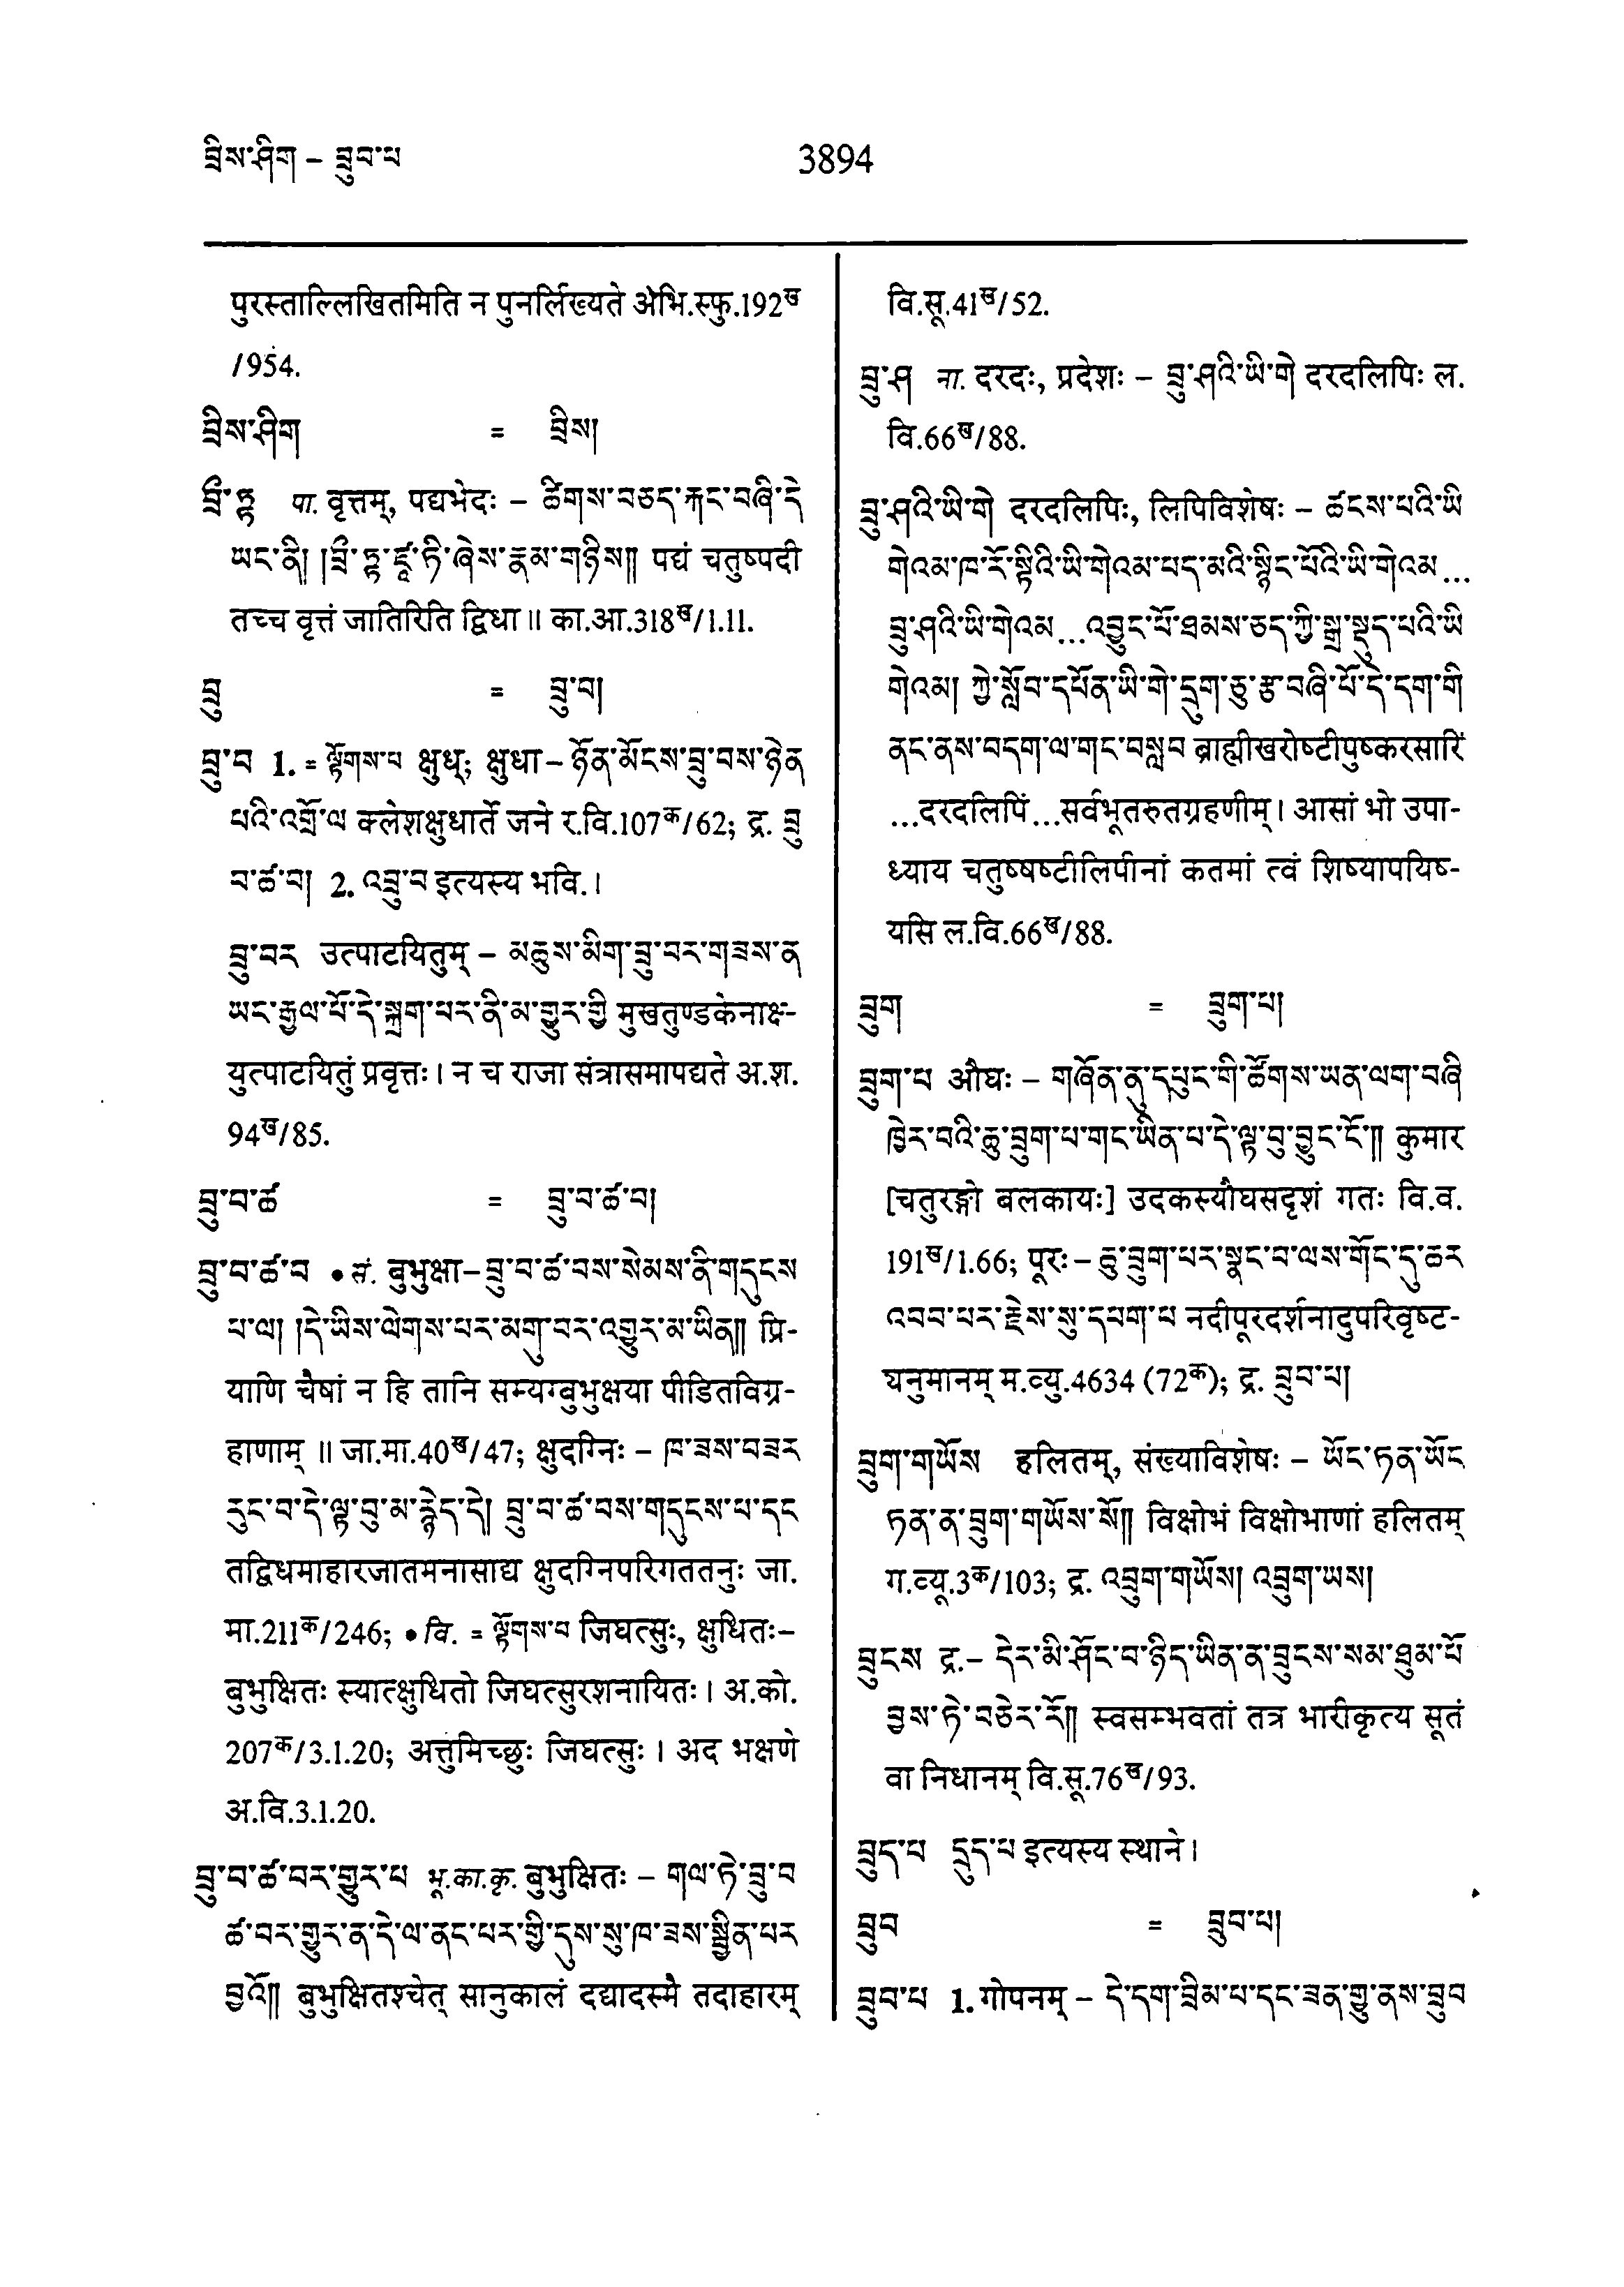 བྲིས་ཤིག – བྲུབ་པ
3894
पुरस्ताल्लिखितमिति न पुनर्लिख्यते अभि.स्फु.192ख
/954.
བྲིས་ཤིག = བྲིས།
བྲྀ་ཏྟ पा. वृत्तम्, पद्यभेदः – ཚིགས་བཅད་རྐང་བཞི་དེ
ཡང་ནི། །བྲྀ་ཏྟ་ཛཱ་ཏི་ཞེས་རྣམ་གཉིས༎ पद्यं चतुष्पदी
तच्च वृत्तं जातिरिति द्विधा ॥ का.आ.318ख/1.11.
བྲུ = བྲུ་བ།
བྲུ་བ 1. = ལྟོགས་པ क्षुध्; क्षुधा – ཉོན་མོངས་བྲུ་བས་ཉེན
པའི་འགྲོ་ལ क्लेशक्षुधार्ते जने र.वि.107क/62; द्र. བྲུ
བ་ཚ་བ། 2. འབྲུ་བ इत्यस्य भवि. ।
བྲུ་བར उत्पाटयितुम् – མཆུས་མིག་བྲུ་བར་གཟས་ན
ཡང་རྒྱལ་པོ་དེ་སྐྲག་པར་ནི་མ་གྱུར་གྱི मुखतुण्डकेनाक्ष-
युत्पाटयितुं प्रवृत्तः । न च राजा संत्रासमापद्यते अ.श.
94ख/85.
བྲུ་བ་ཚ = བྲུ་བ་ཚ་བ།
བྲུ་བ་ཚ་བ • सं. बुभुक्षा – བྲུ་བ་ཚ་བས་སེམས་ནི་གདུངས
པ་ལ། །དེ་ཡིས་ལེགས་པར་མགུ་བར་འགྱུར་མ་ཡིན༎ प्रि-
याणि चैषां न हि तानि सम्यग्बुभुक्षया पीडितविग्र-
हाणाम् ॥ जा.मा.40ख/47; क्षुदग्निः – ཁ་ཟས་བཟར
རུང་བ་དེ་ལྟ་བུ་མ་རྙེད་དེ། བྲུ་བ་ཚ་བས་གདུངས་པ་དང
तद्विधमाहारजातमनासाद्य क्षुदग्निपरिगततनुः जा.
मा.211क/246; • वि. = ལྟོགས་པ जिघत्सुः, क्षुधितः –
बुभुक्षितः स्यात्क्षुधितो जिघत्सुरशनायितः । अ.को.
207क/3.1.20; अत्तुमिच्छुः जिघत्सुः । अद भक्षणे
अ.वि.3.1.20.
བྲུ་བ་ཚ་བར་གྱུར་པ भू.का.कृ. बुभुक्षितः – གལ་ཏེ་བྲུ་བ
ཚ་བར་གྱུར་ན་དེ་ལ་ནང་པར་གྱི་དུས་སུ་ཁ་ཟས་སྦྱིན་པར
བྱའོ༎ बुभुक्षितश्चेत् सानुकालं दद्यादस्मै तदाहारम्
वि.सू.41ख/52.
བྲུ་ཤ ना. दरदः, प्रदेशः – བྲུ་ཤའི་ཡི་གེ दरदलिपिः ल.
वि.66ख/88.
བྲུ་ཤའི་ཡི་གེ दरदलिपिः, लिपिविशेषः – ཚངས་པའི་ཡི
གེའམ་ཁ་རོ་སྟིའི་ཡི་གེའམ་པད་མའི་སྙིང་པོའི་ཡི་གེའམ...
བྲུ་ཤའི་ཡི་གེའམ...འབྱུང་པོ་ཐམས་ཅད་ཀྱི་སྒྲ་སྡུད་པའི་ཡི
གེའམ། ཀྱེ་སློབ་དཔོན་ཡི་གེ་དྲུག་ཅུ་རྩ་བཞི་པོ་དེ་དག་གི
ནང་ནས་བདག་ལ་གང་བསླབ ब्राह्मीखरोष्टीपुष्करसारिं
...दरदलिपिं...सर्वभूतरुतग्रहणीम् । आसां भो उपा-
ध्याय चतुष्षष्टीलिपीनां कतमां त्वं शिष्यापयिष-
यसि ल.वि.66ख/88.
བྲུག = བྲུག་པ།
བྲུག་པ औघः – གཞོན་ནུ་དཔུང་གི་ཚོགས་ཡན་ལག་བཞི
ཁྱེར་བའི་ཆུ་བྲུག་པ་གང་ཡིན་པ་དེ་ལྟ་བུ་བྱུང་ངོ་༎ कुमार
[चतुरङ्गो बलकायः] उदकस्यौघसदृशं गतः वि.व.
191ख/1.66; पूरः – ཆུ་བྲུག་པར་སྣང་བ་ལས་གོང་དུ་ཆར
འབབ་པར་རྗེས་སུ་དཔག་པ नदीपूरदर्शनादुपरिवृष्ट-
यनुमानम् म.व्यु.4634 (72क); द्र. བྲུབ་པ།
བྲུག་གཡོས हलितम्, संख्याविशेषः – ཡོང་ཏན་ཡོང
ཏན་ན་བྲུག་གཡོས་སོ༎ विक्षोभं विक्षोभाणां हलितम्
ग.व्यू.3क/103; द्र. འབྲུག་གཡོས། འབྲུག་ཡས།
བྲུངས द्र. – དེར་མི་ཤོང་བ་ཉིད་ཡིན་ན་བྲུངས་སམ་ཐུམ་པོ
བྱས་ཏེ་བཅེར་རོ༎ स्वसम्भवतां तत्र भारीकृत्य सूतं
वा निधानम् वि.सू.76ख/93.
བྲུད་པ དྲུད་པ इत्यस्य स्थाने ।
བྲུབ = བྲུབ་པ།
བྲུབ་པ 1. गोपनम् – དེ་དག་བྲིམ་པ་དང་ཟན་གྱུ་ནས་བྲུབ